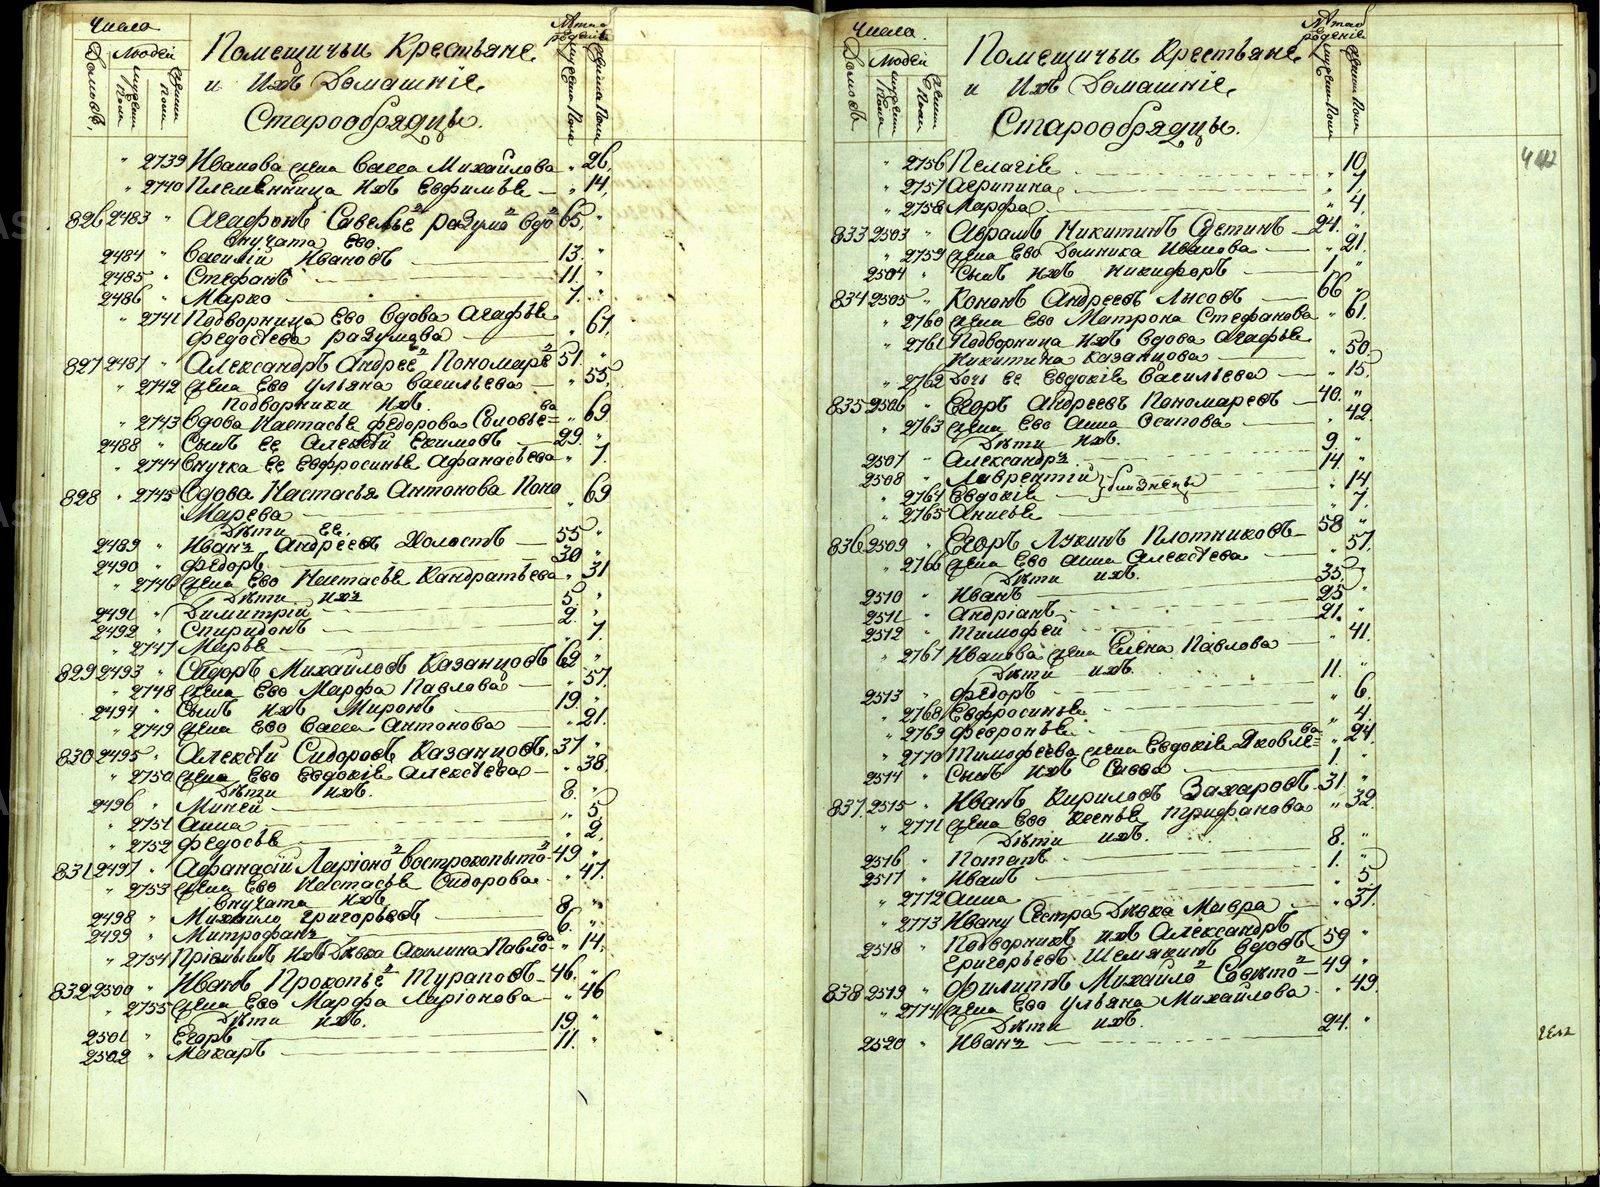 Числа
Домовъ,
Людей
мужеска Пола
женска Пола
Помещичьи Крестьяне,
и Ихъ Домашніе,
Старообрядцы.
Лѣта отъ рожденія
мужеска Пола
женска Пола
" 2739 Иванова жена Васса Михайлова " 26,
" 2740 Племянница Ихъ Евфимья — " 14,
826 2483 " Агафонъ Савельев Разумов вдов 65, "
Внучата Ево.
2484 " Василий Ивановъ — 13. "
2485 " Стефанъ — 11. "
2486 " Марко — 7. "
" 2741 Подворница Ево Вдова Агафья
Федосѣева Разумова — " 67,
827 2487 " Александръ Андрее Пономаре 51. "
" 2742 жена Ево Ульяна Васильева — " 55,
Подворники Ихъ.
" 2743 Вдова Настасья Федорова Соловье=ва " 69
2488 " Сынъ Ее Алексѣй Екимовъ — 29. "
" 2744 Внучка Ее Евфросинья Афанасьева " 7.
828 " 2745 Вдова Настасья Антонова Поно
Марева — " 69
Дѣти Ее,
2489 " Иванъ Андреевъ Холостъ — 55 "
2490 " Федоръ — 30 "
" 2746 жена Ево Настасья Кандратьева " 31
Дѣти ихъ
2491 " Димитрій — 5. "
2492 " Спиридонъ — 2. "
" 2747 Марья — " 7.
829 2493 " Сидоръ Михайловъ Казанцовъ 69 "
" 2748 жена Ево Марфа Павлова — " 57.
2494 " Сынъ ихъ Миронъ — 19. "
" 2749 жена Ево Васса Антонова — " 21.
830 2495 " Алексѣй Сидоровъ Казанцовъ, 37 "
" 2750 жена Ево Евдокія Алексѣева — " 38.
Дѣти ихъ.
2496 " Миней — 8. "
" 2751 Анна — " 5,
" 2752 Федосья — " 2.
831 2497 " Афанасій Ларіоно Вострокопыто 49 "
" 2753 жена Ево Настасья Сидорова — " 47.
Внучата Ихъ
2498 " Михайло Григорьевъ — 8. "
2499 " Митрофанъ — 6. "
" 2754 Пріемышъ Ихъ Дѣвка Акилина Павло=ва " 14.
832 2500 " Иванъ Прокопье Тураповъ — 46. "
" 2755 жена Ево Марфа Ларіонова — " 46
Дѣти ихъ.
2501 " Егоръ — 19. "
2502 " Макаръ — 11. "
Числа.
Домовъ
Людей
мужеска Пола
женска Пола
Помещичьи Крестьяне,
и Ихъ Домашніе,
Старообрядцы.
Лѣта отъ рожденіе
мужеска Пола
женска Пола
" 2756 Пелагія " 10
" 2757 Агрипина " 7,
" 2758 Марфа " 4,
833 2503 " Аврамъ Никитинъ Сѣтинъ — 24. "
" 2759 жена Ево Домника Иванова — " 21.
2504 " Сынъ Ихъ Никифоръ — 1. "
834 2505 " Кононъ Андреевъ Лисовъ — 66 "
" 2760 жена Ево Матрона Стефанова " 61.
" 2761 Подворница Ихъ Вдова Агафья
Никитина Казанцова — " 50.
" 2762 Дочь Ее Евдокія Васильева — " 15.
835 2506 " Егоръ Андреевъ Пономаревъ — 40. "
" 2763 жена Ево Анна Осипова — " 42.
Дѣти ихъ.
2507 " Александръ 9. "
2508 " Лаврентій 14. "
близнецы
" 2764 Евдокія — " 14
" 2765 Анисья — " 7.
836 2509 " Егоръ Лукинъ Плотниковъ — 58 "
" 2766 жена Ево Анна Алексѣева — " 57.
Дѣти ихъ.
2510 " Иванъ 35. "
2511 " Андріанъ 25 "
2512 " Тимофей 21. "
" 2767 Иванова жена Елена Павлова — " 41.
Дѣти ихъ.
2513 " Федоръ 11. "
" 2768 Евфросинья " 6.
" 2769 Февронья " 4.
" 2770 Тимофеева жена Евдокія Яковле=ва " 24.
2514 " Сынъ ихъ Савва — 1. "
837. 2515 " Иванъ Кириловъ Захаровъ 31. "
" 2771 жена Ево Ксенья Трифанова " 32.
Дѣти ихъ.
2516 " Потапъ 8. "
2517 " Иванъ 1. "
" 2772 Анна " 5
" 2773 Ивану Сестра Дѣвка Мавра — " 37.
2518 " Подворникъ ихъ Александръ
Григорьевъ Шемякинъ Вдовъ 59 "
838 2519 " Филиппъ Михайло — 49 "
" 2774 жена Ево Ульяна Михайлова " 49.
Дѣти ихъ.
2520 " Иванъ 24. "